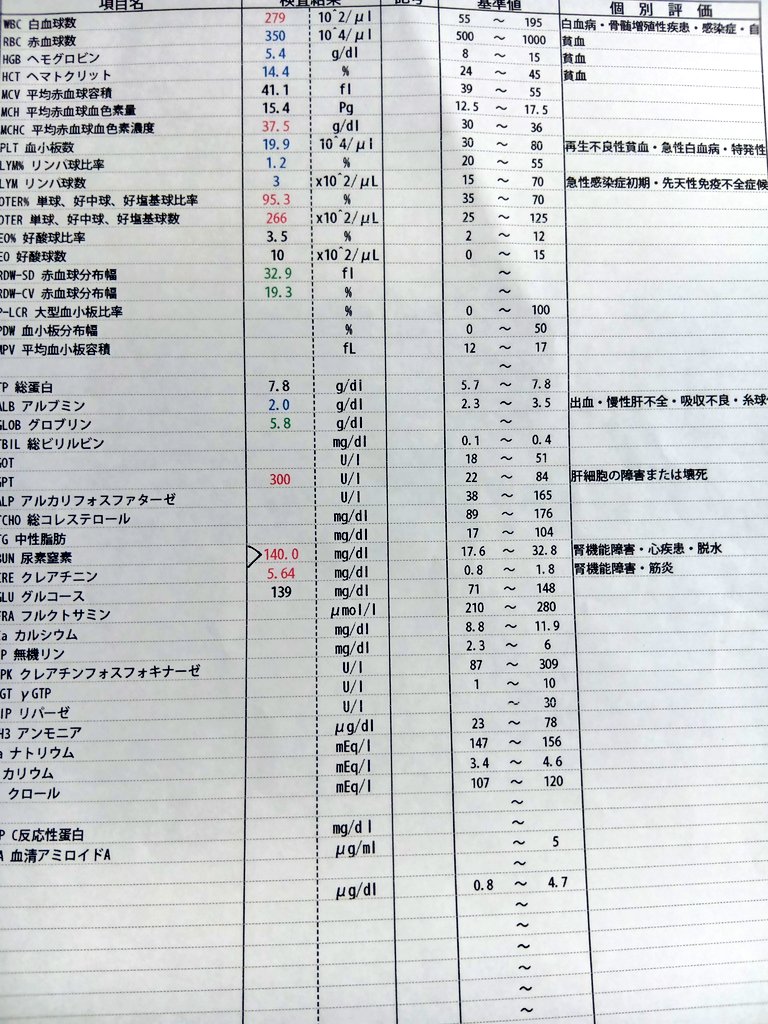 項目名 検査結果 記号 基準値 個別評価
WBC 白血球数 279 10^2/μl 55 ～ 195 白血病・骨髄増殖性疾患・感染症・自
RBC 赤血球数 350 10^4/μl 500 ～ 1000 貧血
HGB ヘモグロビン 5.4 g/dl 8 ～ 15 貧血
HCT ヘマトクリット 14.4 % 24 ～ 45 貧血
MCV 平均赤血球容積 41.1 fl 39 ～ 55
MCH 平均赤血球血色素量 15.4 Pg 12.5 ～ 17.5
MCHC 平均赤血球血色素濃度 37.5 g/dl 30 ～ 36
PLT 血小板数 19.9 10^4/μl 30 ～ 80 再生不良性貧血・急性白血病・特発性
LYM% リンパ球比率 1.2 % 20 ～ 55
LYM リンパ球数 3 x10^2/μL 15 ～ 70 急性感染症初期・先天性免疫不全症候
OTER% 単球、好中球、好塩基球比率 95.3 % 35 ～ 70
OTER 単球、好中球、好塩基球数 266 x10^2/μL 25 ～ 125
EO% 好酸球比率 3.5 % 2 ～ 12
EO 好酸球数 10 x10^2/μL 0 ～ 15
RDW-SD 赤血球分布幅 32.9 fl ～
RDW-CV 赤血球分布幅 19.3 % ～
P-LCR 大型血小板比率 % 0 ～ 100
PDW 血小板分布幅 % 0 ～ 50
MPV 平均血小板容積 fL 12 ～ 17
～
TP 総蛋白 7.8 g/dl 5.7 ～ 7.8
ALB アルブミン 2.0 g/dl 2.3 ～ 3.5 出血・慢性肝不全・吸収不良・糸球
GLOB グロブリン 5.8 g/dl ～
TBIL 総ビリルビン mg/dl 0.1 ～ 0.4
GOT U/l 18 ～ 51
GPT 300 U/l 22 ～ 84 肝細胞の障害または壊死
ALP アルカリフォスファターゼ U/l 38 ～ 165
TCHO 総コレステロール mg/dl 89 ～ 176
TG 中性脂肪 mg/dl 17 ～ 104
BUN 尿素窒素 >140.0 mg/dl 17.6 ～ 32.8 腎機能障害・心疾患・脱水
CRE クレアチニン 5.64 mg/dl 0.8 ～ 1.8 腎機能障害・筋炎
GLU グルコース 139 mg/dl 71 ～ 148
FRA フルクトサミン μmol/l 210 ～ 280
Ca カルシウム mg/dl 8.8 ～ 11.9
IP 無機リン mg/dl 2.3 ～ 6
CPK クレアチンフォスフォキナーゼ U/l 87 ～ 309
GGT γGTP U/l 1 ～ 10
LIP リパーゼ U/l ～ 30
NH3 アンモニア μg/dl 23 ～ 78
Na ナトリウム mEq/l 147 ～ 156
カリウム mEq/l 3.4 ～ 4.6
クロール mEq/l 107 ～ 120
～
P C反応性蛋白 mg/dl ～
A 血清アミロイドA μg/ml ～ 5
～
μg/dl 0.8 ～ 4.7
～
～
～
～
～
～